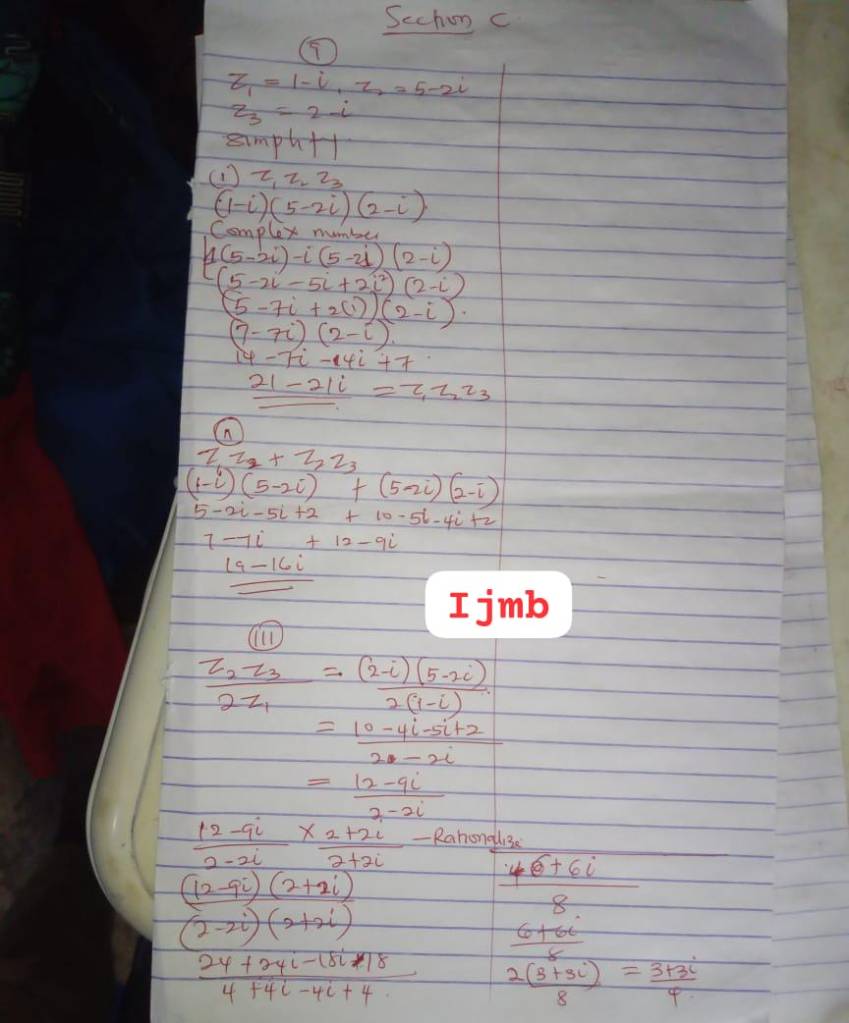 Section C
9
Z₁ = 1-i, Z₂ = 5-2i
Z₃ = 2-i
(i) Z₁ Z₂ Z₃
(1-i)(5-2i)(2-i)
Complex number
1(5-2i)-i(5-2i)(2-i)
(5-2i-5i+2i²)(2-i)
(5-7i+2(i))(2-i).
(7-7i)(2-i).
14-7i-14i+7.
21-21i = Z₁Z₂Z₃
(ii)
Z₁Z₂ + Z₂Z₃
(1-i)(5-2i) + (5-2i)(2-i)
5-2i-5i+2 + 10-5i-4i+2
7-7i + 12-9i
19-16i
Ijmb
(iii)
Z₂Z₃/2Z₁ = (2-i)(5-2i)/2(1-i)
= 10-4i-5i+2/2-2i
= 12-9i/2-2i
12-9i/2-2i × 2+2i/2+2i - Rationalize
(12-9i)(2+2i)/(2-2i)(2+2i)
24+24i-18i-18/4+4i-4i+4.
6+6i/8
6+6i/8
2(3+3i)/8 = 3+3i/4.